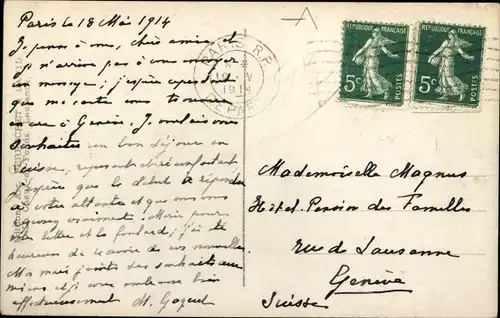 Paris le 18 Mai 1914
Je pense à vous, chère amie, et
je n'arrive pas à vous envoyer
un message; j'espère cependant
que ma carte vous trouvera
encore à Genève. Je voulais vous
souhaiter un bon séjour en
Suisse, reposant et réconfortant
J'espère que le début a répondu
à votre attente et que vous vous
vraiment. Merci pour
votre lettre et le foulard; j'ai été
heureuse de savoir de vos nouvelles.
Ma mari joint des souhaits aux
miens et je vous embrasse bien
affectueusement M.
PARIS R.P.
1914
REPUBLIQUE FRANÇAISE
5c
POSTES
REPUBLIQUE FRANÇAISE
5c
POSTES
Mademoiselle Magnus
Hôtel-Pension des Familles
rue de Lausanne
Genève
Suisse